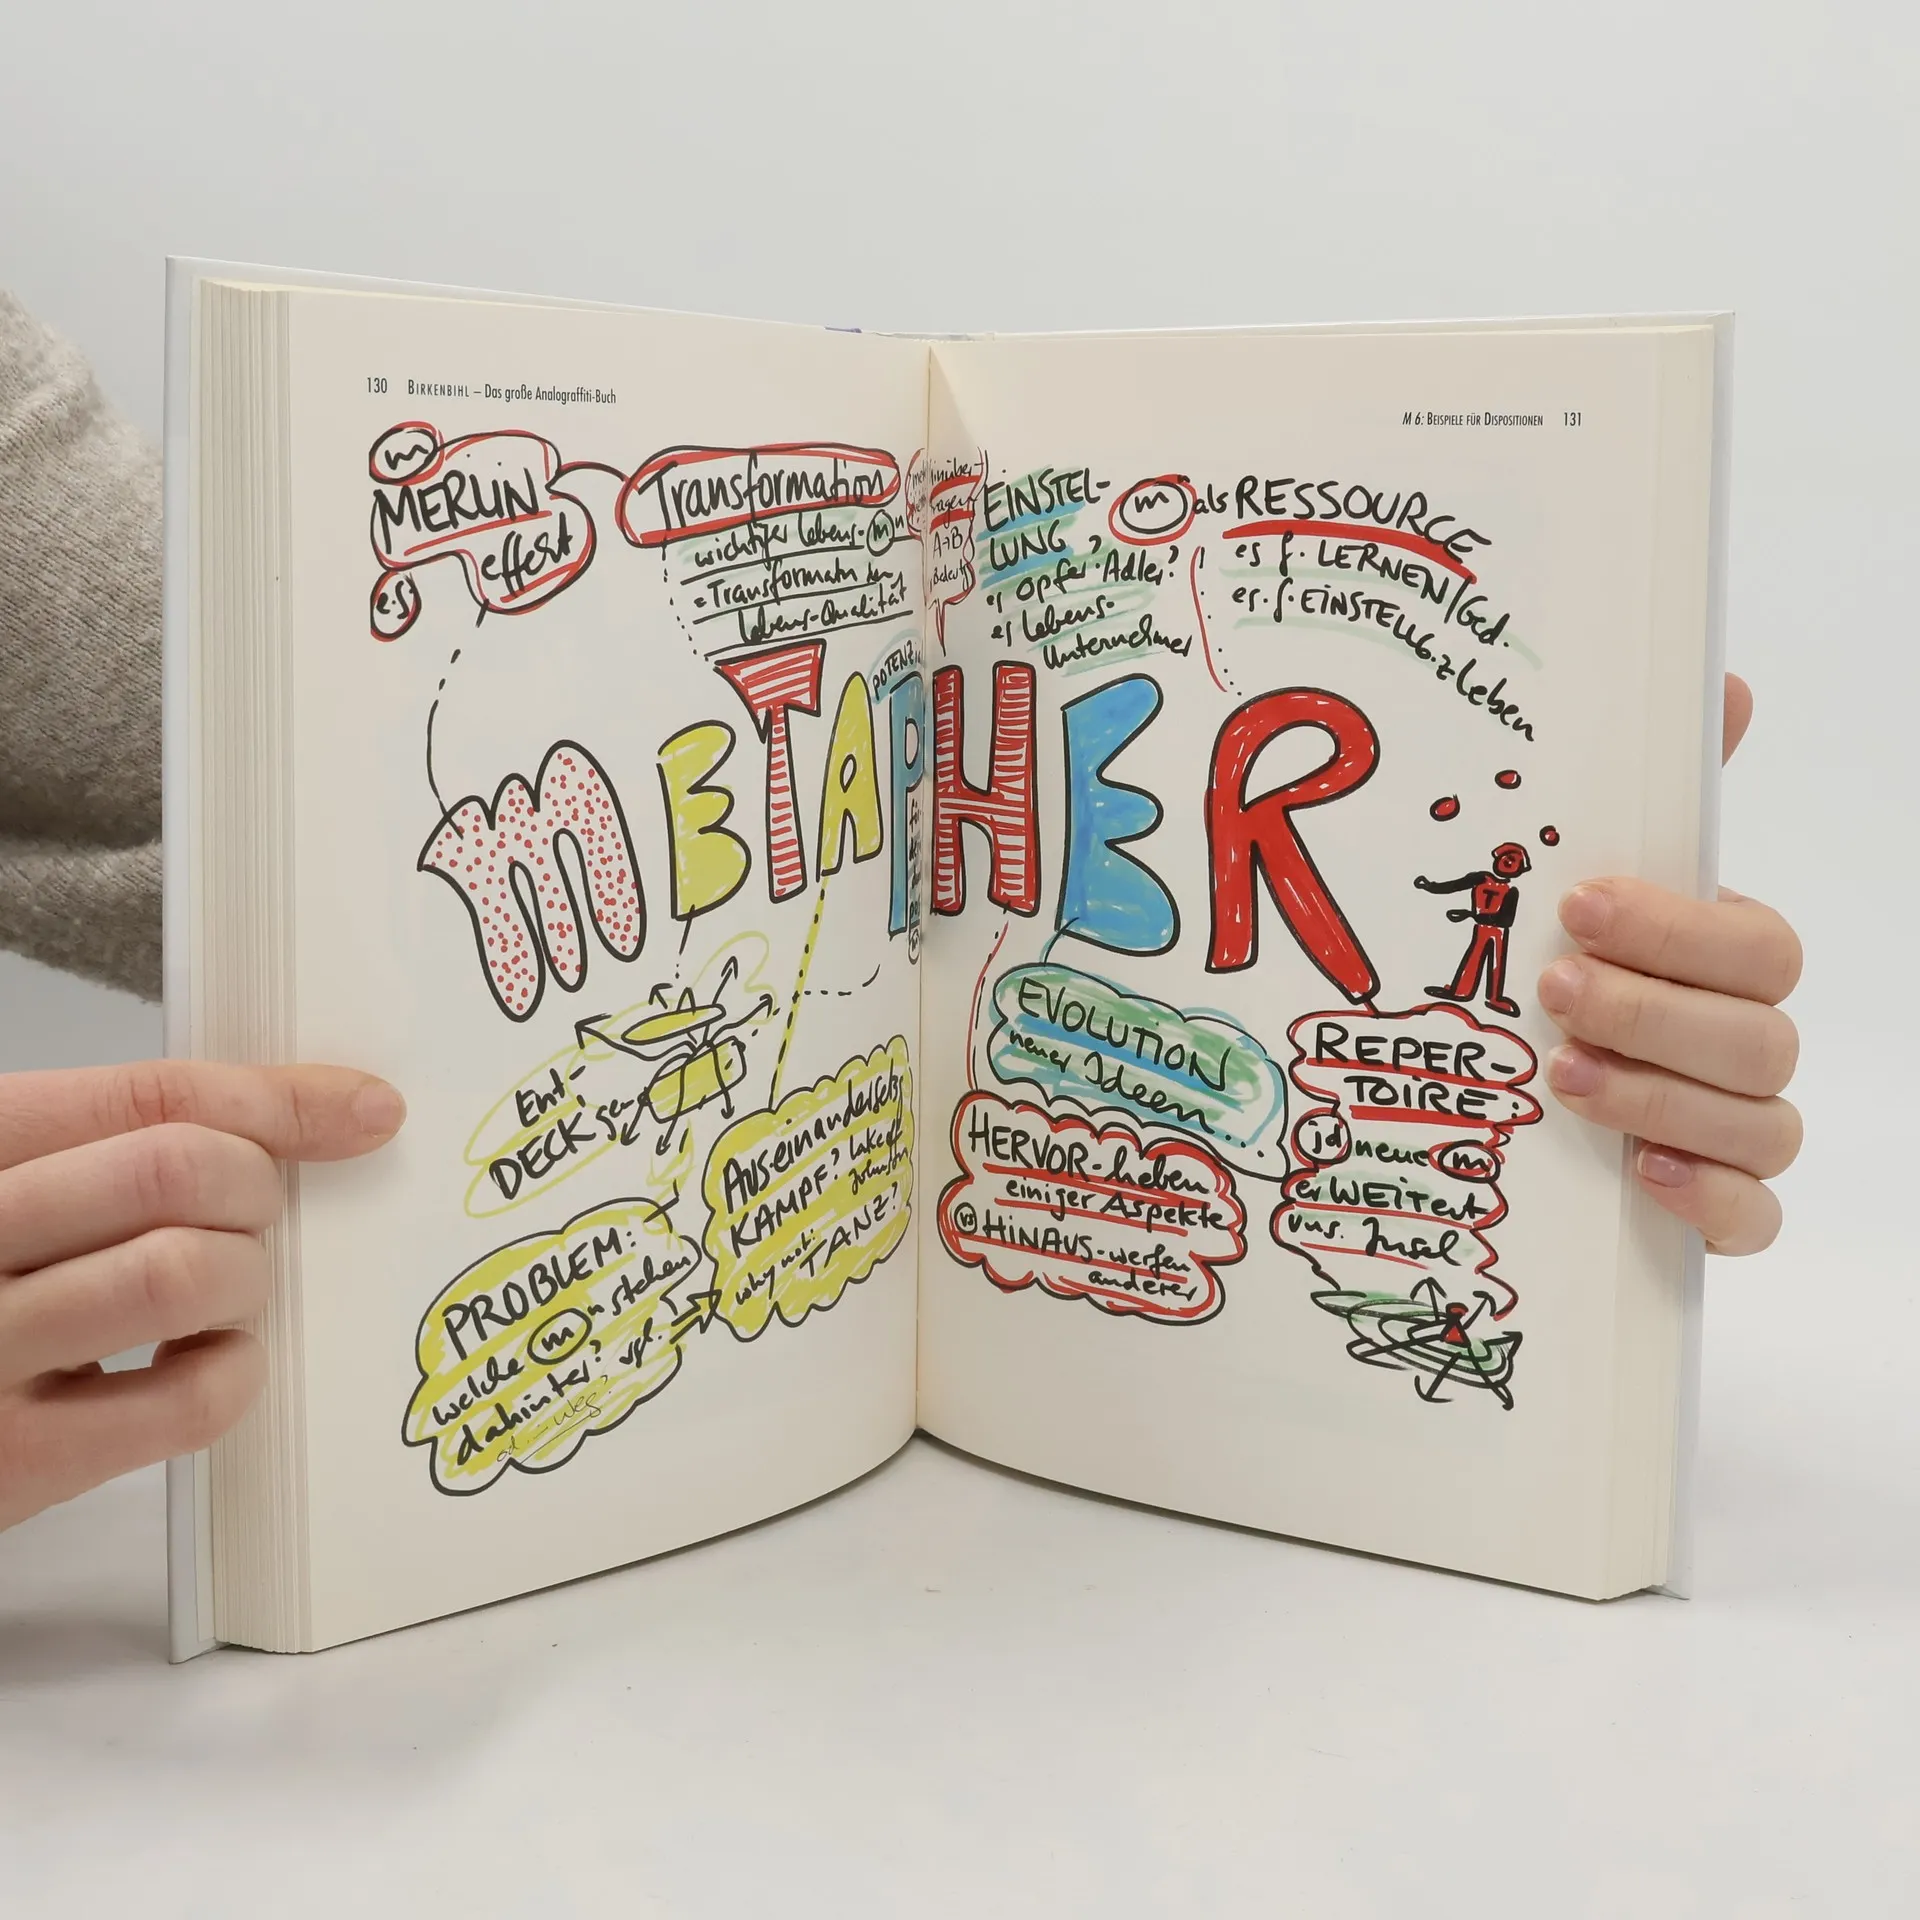 130 BIRKENBIHL – Das große Analograffiti-Buch
M 6: BEISPIELE FÜR DISPOSITIONEN 131
m
MERLIN
effekt
e.g.
Transformation
wichtiger Lebens-m n
= Transformatn der
Lebens-Qualität
POTENZ
hinüber-
tragen
A→B
Bedeutg
EINSTEL-
LUNG
es Opfer? Adler?
es Lebens-
Unternehmer
m als RESSOURCE
es f. LERNEN/Ged.
es. f. EINSTELLG. z Leben
METAPHER
Ent-
DECKgen
PROBLEM:
welche m n stehen
dahinter? vgl.
od. – Weg?
Auseinandersetzg
KAMPF? Lakoff
Johnson
why not:
TANZ?
EVOLUTION
neuer Ideen..
HERVOR-heben
einiger Aspekte
vs HINAUS-werfen
anderer
T
REPER-
TOIRE:
jd neue m
erWEITert
uns. Insel